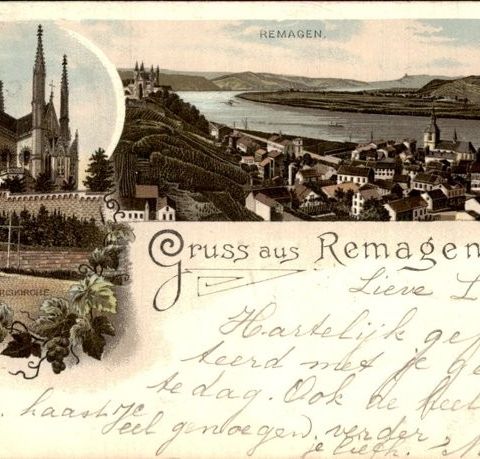 REMAGEN.
Gruss aus Remagen
RGSKIRCHE
Lieve L
Hartelijk gef
teerd met je ge
te dag. Ook de heel
haast
Veel genoegen verder
je liefh.